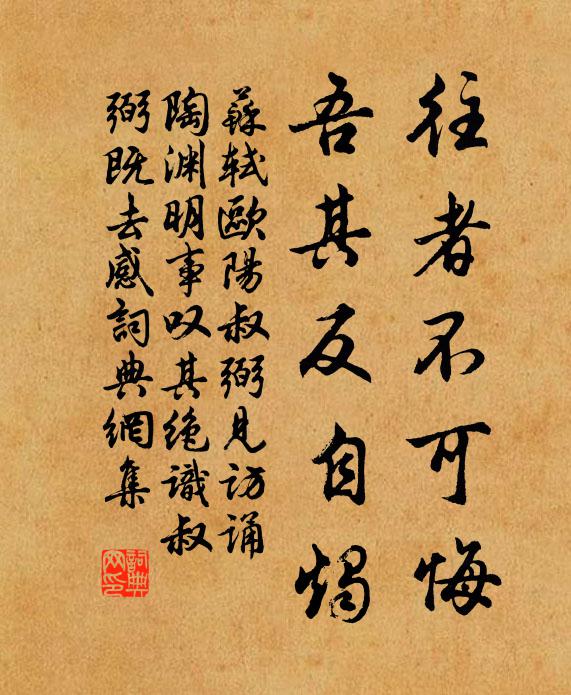 往者不可悔
吾其反自燭
蘇軾歐陽叔弼見訪誦
陶渊明事叹其絶識叔
弼既去感詞典網集
詞典网印